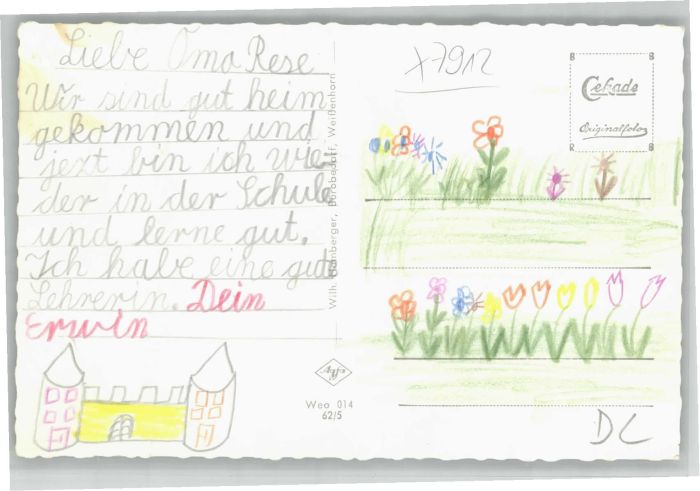 Liebe Oma Rese
Wir sind gut heim
gekommen und
jezt bin ich wie-
der in der Schule
und lerne gut.
Ich habe eine gute
Lehrerin. Dein
Erwin
Weißenhorn
Agfa
Weo 014
62/5
x7912
Cekade
Originalfoto
DC